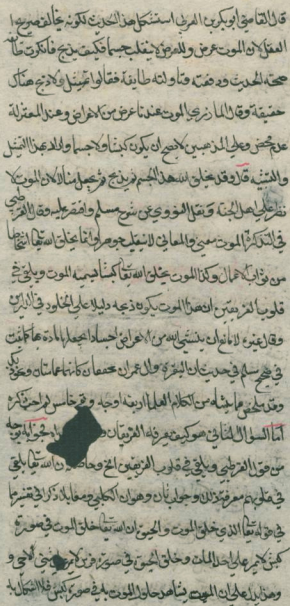 قال القاضي ابو بكر بن العربي استشكل هذا الحديث لكونه يخالف صريح
العقل لان الموت عرض والعرض لا ينقلب جسما فكيف يذبح فانكرت طائفة
صحة الحديث ودفعته وتاولته طائفة فقالوا هذا تمثيل ولا ذبح هناك
حقيقة وقال المازري الموت عندنا عرض من الاعراض وعند المعتزلة
عدم محض وعلى المذهبين لا يصح ان يكون كبشا ولا جسما والمراد بهذا التمثيل
والتشبيه قال وقد يخلق الله هذا الجسم ثم يذبح ثم يجعل مثالا لان الموت لا
يطرا على اهل الجنة ونقل النووي عن شرح مسلم واقره عليه وقال القرطبي
في التذكرة الموت معنى والمعاني لا تنقلب جوهرا وانما يخلق الله تعالى اشخاصا
من ثواب الاعمال وكذا الموت يخلق الله تعالى كبشا يسميه الموت ويلقي في
قلوب الفريقين ان هذا الموت يكون ذبحه دليلا على الخلود في الدارين
وقال غيره لا مانع ان ينشئ الله من الاعراض اجسادا يجعلها مادة لها كما ثبت
في صحيح مسلم في حديث ان البقرة وال عمران يجيئان كانهما غمامتان ونحو ذلك
وقد تلخص مما سقناه من الكلام العلماء اربعة اوجه
اما السؤال الثاني هو كيف عرفه الفريقان
من قول القرطبي ويلقي في قلوب الفريقين الخ وحاصله ان الله تعالى يلقي
في قلوبهم معرفة ذلك وجواب ثان وهو ان الكلبي ومقاتلا ذكرا في تفسيرهما
في قوله تعالى الذي خلق الموت والحيوة ان الله تعالى خلق الموت في صورة
كبش لا يمر على احد الا مات وخلق الحيوة في صورة فرس لا يمر على شيء الا حيي و
وهذا يدل على ان الميت يشاهد حلول الموت به في صورة كبش فلا اشكال